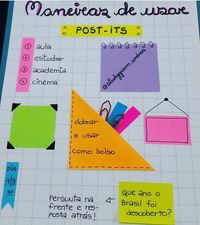 Maneiras de usar
POST-ITS
1 aula
2 estudar
3 academia
4 cinema
dobrar
e usar
como bolso
DIA
Pergunta na
frente e res-
posta atrás!
Que ano o
Brasil foi
descoberto?